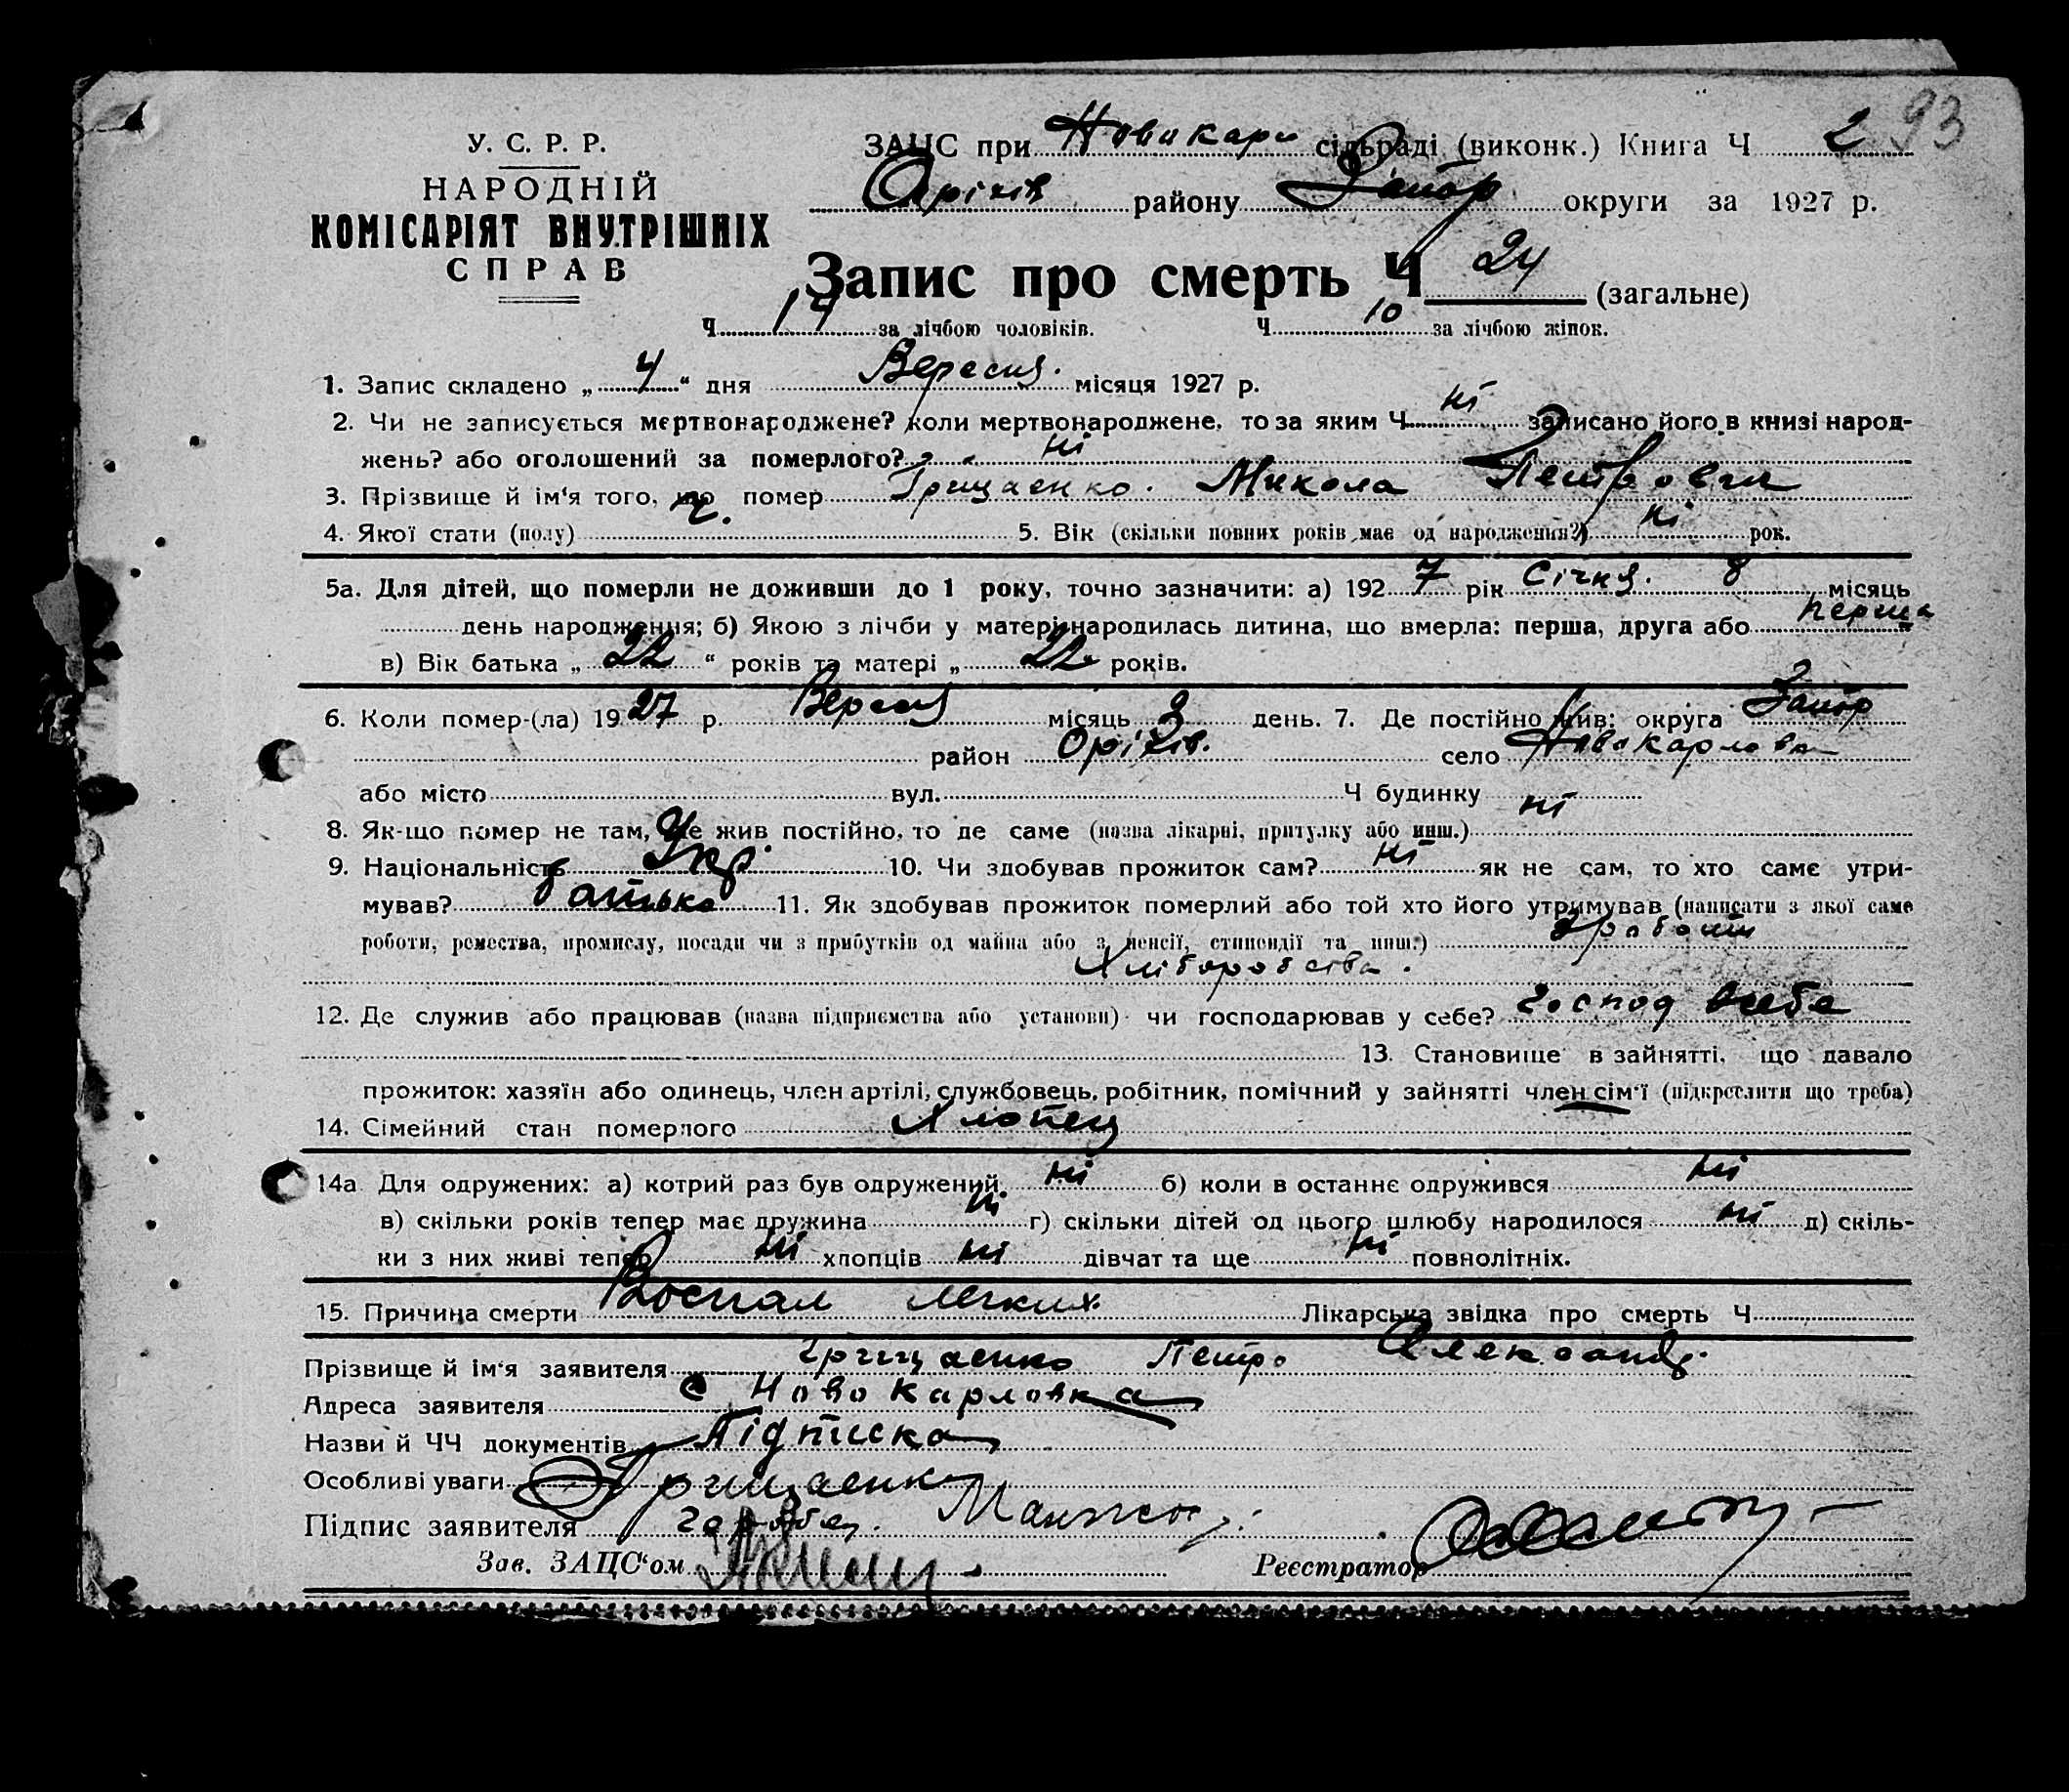 93
У. С. Р. Р.
НАРОДНІЙ
КОМІСАРІЯТ ВНУТРІШНІХ
СПРАВ
ЗАЦС при Новокарл сільраді (виконк.) Книга Ч 2
Оріхів району Запор округи за 1927 р.
Запис про смерть Ч 24 (загальне)
Ч 14 за лічбою чоловіків. Ч 10 за лічбою жінок.
1. Запис складено „ 4 “ дня Вересня місяця 1927 р.
2. Чи не записується мертвонароджене? коли мертвонароджене, то за яким Ч ні записано його в книзі народ-
жень? або оголошений за померлого? ні
3. Прізвище й ім‘я того, що помер Грищаенко Микола Петрович
4. Якої стати (полу) ч. 5. Вік (скільки повних років має од народження?) ні рок.
5а. Для дітей, що померли не доживши до 1 року, точно зазначити: а) 192 7 рік Січня 8 місяць
день народження; б) Якою з лічби у матері народилась дитина, що вмерла: перша, друга або перша
в) Вік батька „ 22 “ років та матері „ 22 років.
6. Коли помер-(ла) 19 27 р. Вересня місяць 3 день. 7. Де постійно жив: округа Запор
район Оріхів. село Новокарловка
або місто вул. Ч будинку ні
8. Як-що помер не там, де жив постійно, то де саме (назва лікарні, притулку або инш.)
9. Національність Укр. 10. Чи здобував прожиток сам? ні як не сам, то хто саме утри-
мував? батько 11. Як здобував прожиток померлий або той хто його утримував (написати з якої саме
роботи, ремества, промислу, посади чи з прибутків од майна або з пенсії, стипендії та инш.) з работи
Хліборобства.
12. Де служив або працював (назва підприємства або установи) чи господарював у себе? господ в себе
13. Становище в зайнятті, що давало
прожиток: хазяїн або одинець, член артілі, службовець, робітник, помічний у зайнятті член сім‘ї (підкреслити що треба)
14. Сімейний стан померлого Хлопець
14а Для одружених: а) котрий раз був одружений ні б) коли в останнє одружився ні
в) скільки років тепер має дружина ні г) скільки дітей од цього шлюбу народилося ні д) скіль-
ки з них живі тепер ні хлопців ні дівчат та ще ні повнолітніх.
15. Причина смерти Воспал легких Лікарська звідка про смерть Ч
Прізвище й ім‘я заявителя Грищаенко Петро Александр.
Адреса заявителя с Ново Карловка
Назви й ЧЧ документів Підписка
Особливі уваги Грищаенко
Підпис заявителя
Зав. ЗАЦС‘ом Реєстратор